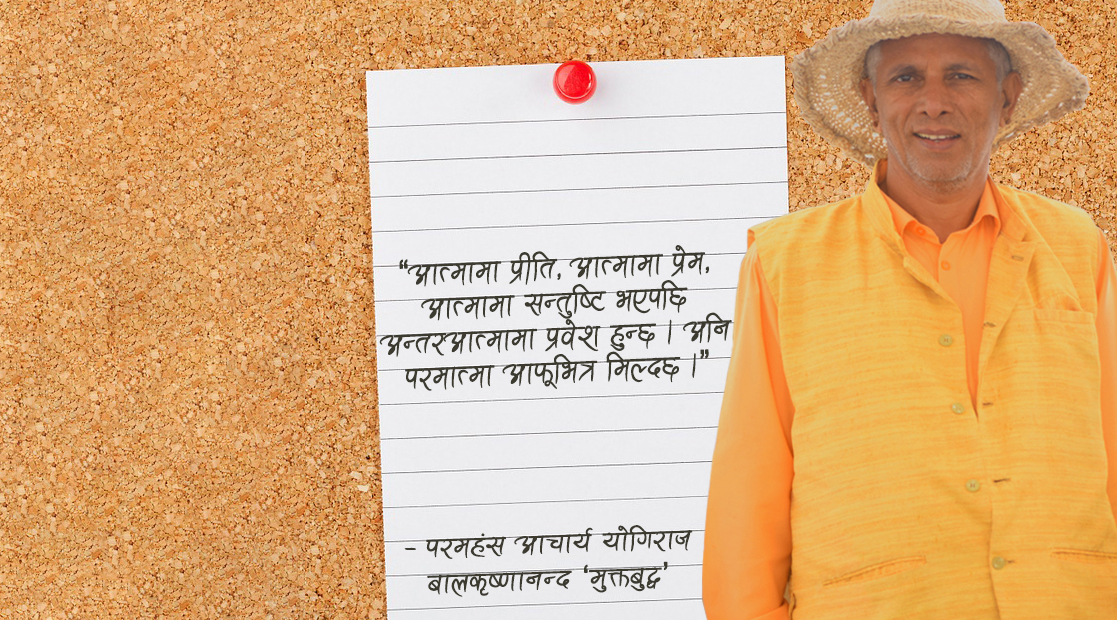 “आत्मामा प्रीति, आत्मामा प्रेम,
आत्मामा सन्तुष्टि भएपछि
अन्तरआत्मामा प्रवेश हुन्छ । अनि
परमात्मा आफूभित्र मिल्दछ ।”
- परमहंस आचार्य योगिराज
बालकृष्णानन्द ‘मुक्तबुद्ध’